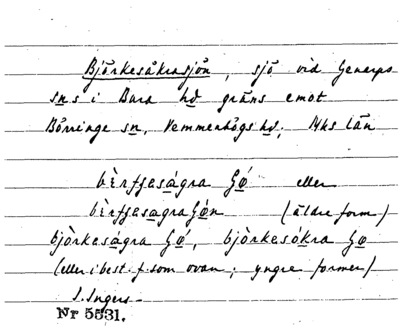 Björkesåkrasjön, sjö vid Genarps
sns i Bara hd gräns emot
Börringe sn, Vemmenhögs hd, Mhs län
bèrfjesågra ʃǿ eller
bèrfjesagraʃǿn (äldre form)
bjòrkeságra ʃǿ, bjòrkesókra ʃø
(eller i best. f. som ovan; yngre former)
I. Ingers
Nr 5531.